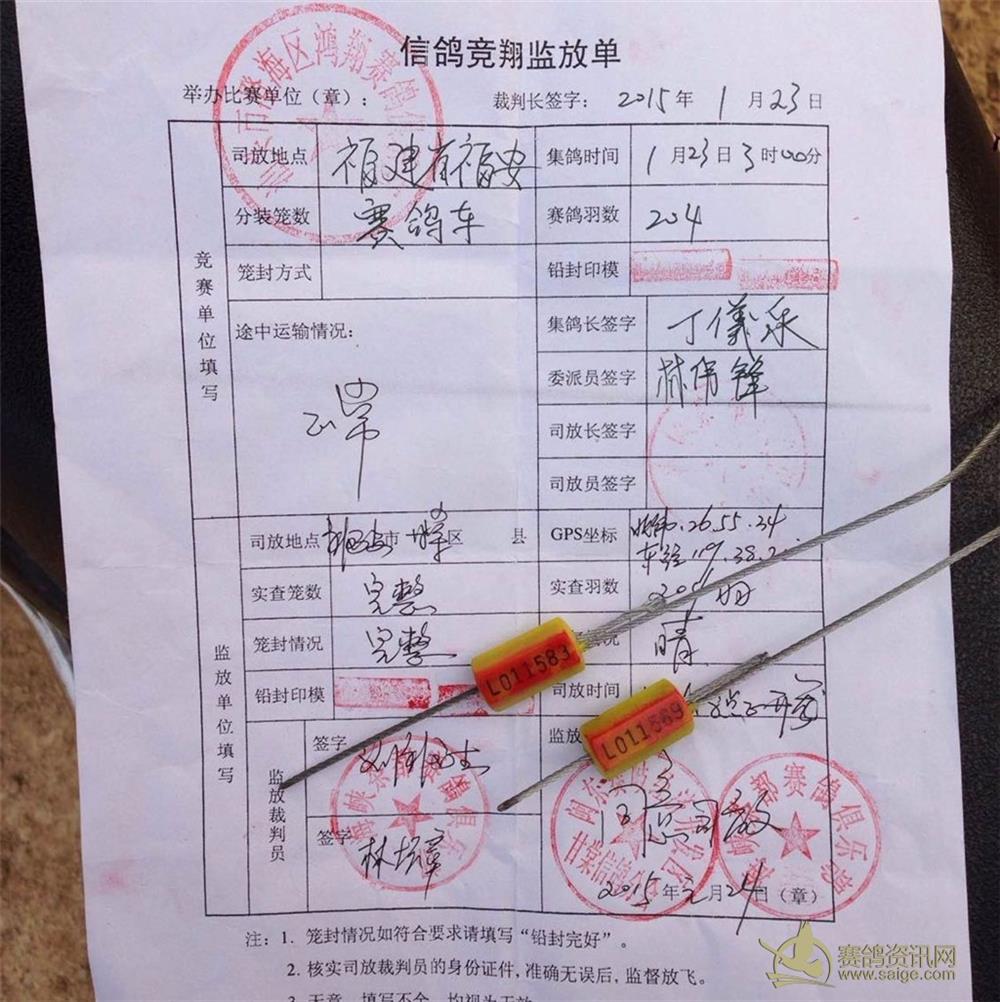 信鸽竞翔监放单
举办比赛单位（章）： 裁判长签字： 2015年 1月23日
竞赛单位填写
司放地点 福建省福安 集鸽时间 1月23日3时00分
分装笼数 赛鸽车 赛鸽羽数 204
笼封方式 铅封印模
途中运输情况： 集鸽长签字 丁仪
正常 委派员签字 林伟锋
司放长签字
司放员签字
监放单位填写
司放地点 市 区 县 GPS坐标 26.55.24
东经119.38.2
实查笼数 完整 实查羽数 204羽
笼封情况 完整 况 晴
铅封印模 司放时间
L011583
L011569
监放裁判员
签字 监放
同意司放
签字 林 章
2015年元月24日（章）
海区鸿翔赛鸽俱
都赛鸽俱乐部
甘棠信鸽
注：1. 笼封情况如符合要求请填写“铅封完好”。
2. 核实司放裁判员的身份证件，准确无误后，监督放飞。
3. 无章、填写不全，均视为无效
赛鸽资讯网
www.saige.com